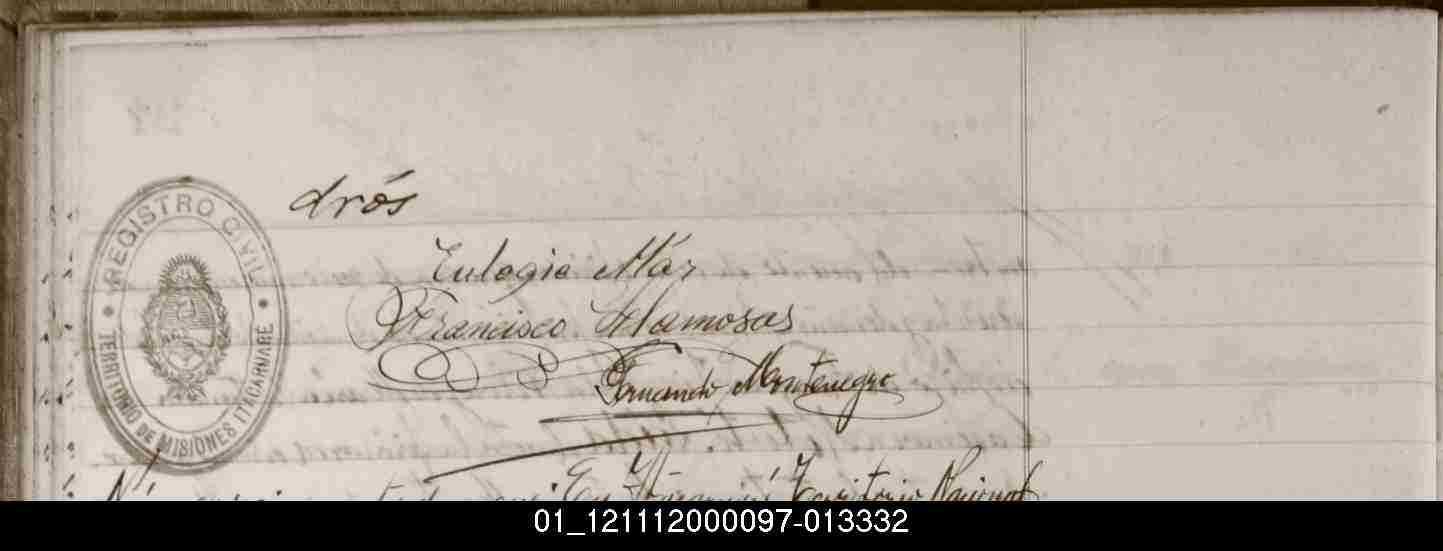 drós
REGISTRO CIVIL
TERRITORIO DE MISIONES ITACARUARE
Eulogio
Francisco Llamosas
Fernando Montenegro
En Territorio Nacional
01_121112000097-013332